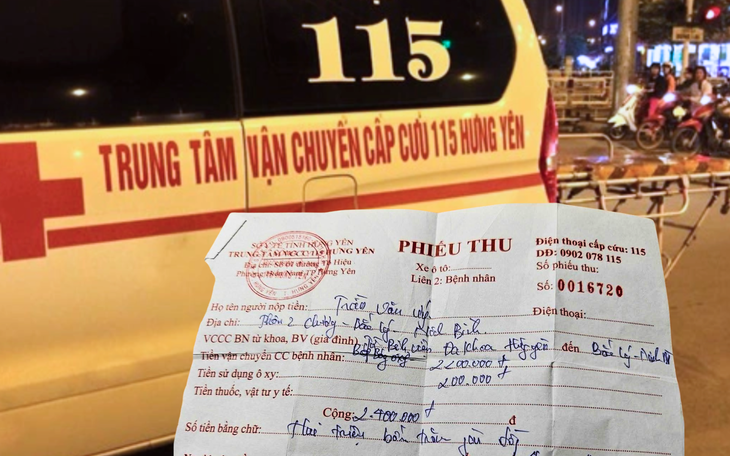 115
TRUNG TÂM VẬN CHUYỂN CẤP CỨU 115 HƯNG YÊN
SỞ Y TẾ TỈNH HƯNG YÊN
TRUNG TÂM VCCC 115 HƯNG YÊN
Địa chỉ: Số 01 đường Tô Hiệu
Phường Hiến Nam, TP Hưng Yên
PHIẾU THU
Xe ô tô:
Liên 2: Bệnh nhân
Điện thoại cấp cứu: 115
DĐ: 0902 078 115
Số phiếu thu:
Số: 0016720
Họ tên người nộp tiền: Trần Văn
Điện thoại:
Địa chỉ: Thôn 2 - Bắc Lý - Ninh Bình
VCCC BN từ khoa, BV (gia đình) Bệnh viện Đa khoa đến Bắc Lý -
Tiền vận chuyển CC bệnh nhân: 2200.000đ
Tiền sử dụng ô xy: 200.000đ
Tiền thuốc, vật tư y tế:
Cộng: 2.400.000đ đ
Số tiền bằng chữ: Hai triệu bốn trăm